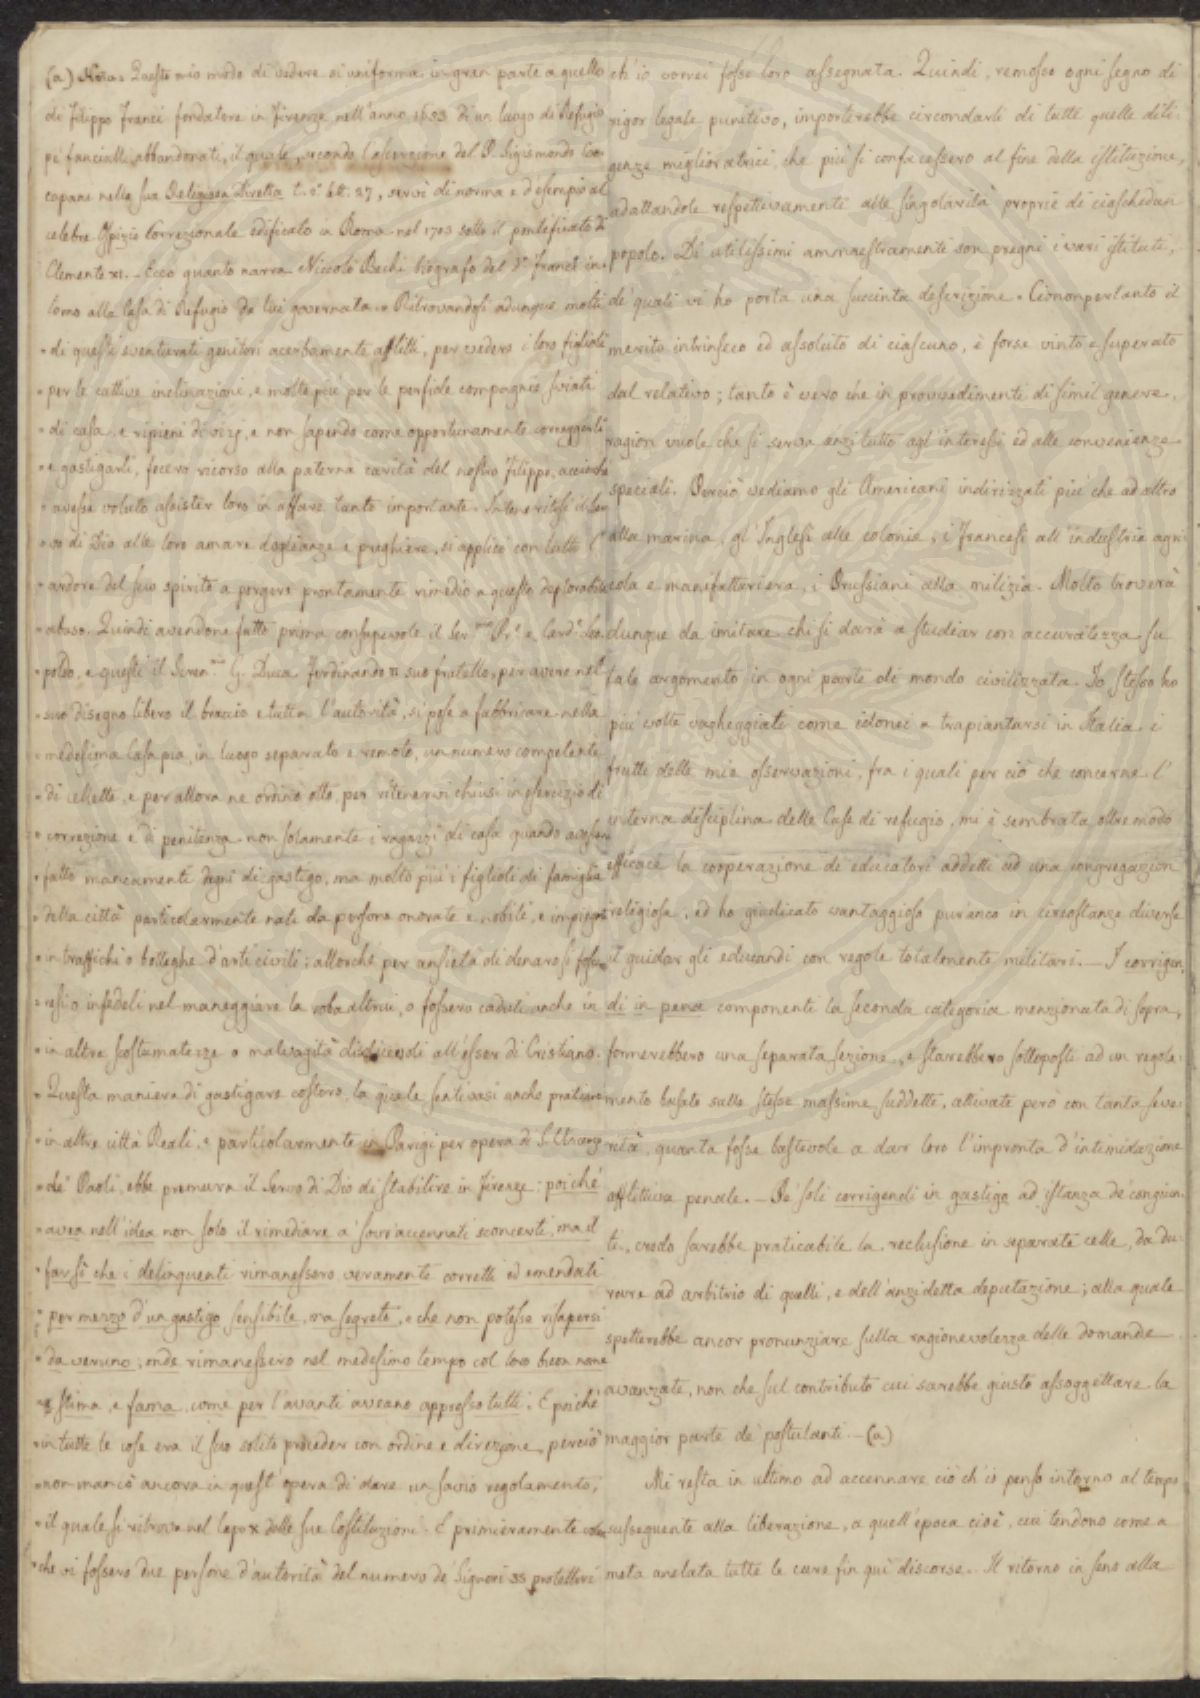 (a) Nota. Questo mio modo di vedere si uniforma in gran parte a quello
di Filippo Franci fondatore in Firenze nell'anno 1653 di un luogo di Refugio
pe' fanciulli abbandonati, il quale, secondo l'asserzione del P. Sigismondo
capani nella sua Religiosa Diretta t. 2° lett. 27, servì di norma e d'esempio al
celebre Ospizio Correzionale edificato in Roma nel 1703 sotto il pontificato di
Clemente XI. - Ecco quanto narra Niccolò Bechi biografo del d° Franci in-
torno alla Casa di Refugio da lui governata. " Ritrovandosi adunque molti
" di questi sventurati genitori acerbamente afflitti, per vedere i loro figlioli
" per le cattive inclinazioni, e molto più per le perfide compagnie sviati
" di casa, e ripieni di vizj, e non sapendo come opportunamente correggerli
" e gastigarli, fecero ricorso alla paterna carità del nostro Filippo, acciocchè
" avesse voluto assister loro in affare tanto importante. Inteneritosi il Ser-
" vo di Dio alle loro amare doglianze e preghiere, si applicò con tutto l'
" ardore del suo spirito a porgere prontamente rimedio a questo deplorabile
" abuso. Quindi avendone fatto prima consapevole il Ser.mo Pr.e e Card.e Leo-
" poldo, e questi il Seren.mo G. Duca Ferdinando II suo fratello, per avere nel
" suo disegno libero il braccio e tutta l'autorità, si pose a fabbricare nella
" medesima Casa pia, in luogo separato e remoto, un numero competente
" di cellette, e per allora ne ordinò otto, per ritenervi chiusi in esercizio di
" correzione e di penitenza non solamente i ragazzi di casa quando avessero
" fatto mancamenti degni di gastigo, ma molto più i figlioli di famiglia
" della città particolarmente nati da persone onorate e nobili, e impiegati
" in traffichi o botteghe d'arti civili; allorchè per ansietà di denaro si fosse-
" resi o infedeli nel maneggiare la roba altrui, o fossero caduti anche in
" in altre scostumatezze o malvagità disdicevoli all'esser di Cristiano.
" Questa maniera di gastigare costoro, la quale sentivasi anche praticare
" in altre città Reali, e particolarmente in Parigi per opera di S. Vincenzo
" de' Paoli, ebbe premura il Servo di Dio di stabilire in Firenze: poichè
" avea nell'idea non solo il rimediare a' sovraccennati sconcerti, ma il
" far sì che i delinquenti rimanessero veramente corretti ed emendati
" per mezzo d'un gastigo sensibile, ma segreto, e che non potesse risapersi
" da veruno; onde rimanessero nel medesimo tempo col loro buon nome
" stima, e fama, come per l'avanti aveano appresso tutti. E poichè
" in tutte le cose era il suo solito proceder con ordine e direzione, perciò
" non mancò ancora in quest'opera di dare un savio regolamento,
" il quale si ritrova nel Capo X delle sue Costituzioni. E primieramente volle
" che vi fossero due persone d'autorità del numero de' Signori 33 protettori
ch'io vorrei fosse loro assegnata. Quindi, remosso ogni segno di
rigor legale punitivo, importerebbe circondarli di tutte quelle dili-
genze miglioratrici, che più si confacessero al fine della istituzione,
adattandole respettivamente alle singolarità proprie di ciaschedun
popolo. Di utilissimi ammaestramenti son pregni i varj istituti,
de' quali vi ho porta una succinta descrizione. Ciononpertanto il
merito intrinseco ed assoluto di ciascuno, è forse vinto e superato
dal relativo; tanto è vero che in provvedimenti di simil genere,
ragion vuole che si serva anzi tutto agl'interessi ed alle convenienze
speciali. Perciò vediamo gli Americani indirizzati più che ad altro
alla marina, gl'Inglesi alle colonie, i Francesi all'industria agri-
cola e manifatturiera, i Prussiani alla milizia. Molto troverà
dunque da imitare chi si darà a studiar con accuratezza su
tale argomento in ogni parte di mondo civilizzata. Io stesso ho
più volte vagheggiati come idonei a trapiantarsi in Italia i
frutti delle mie osservazioni, fra i quali per ciò che concerne l'
interna disciplina delle Case di refugio, mi è sembrata oltremodo
efficace la cooperazione di educatori addetti ad una congregazion
religiosa, ed ho giudicato vantaggioso pur'anco in circostanze diverse
il guidar gli educandi con regole totalmente militari. — I corrigen-
di in pena componenti la seconda categoria menzionata di sopra,
formerebbero una separata sezione, e starebbero sottoposti ad un regola-
mento basato sulle stesse massime suddette, attivate però con tanta seve-
rità, quanta fosse bastevole a dar loro l'impronta d'intimidazione
afflittiva penale. — Pe' soli corrigendi in gastigo ad istanza de' congiun-
ti, credo sarebbe praticabile la reclusione in separate celle, da du-
rare ad arbitrio di quelli, e dell'anzidetta deputazione; alla quale
spetterebbe ancor pronunziare sulla ragionevolezza delle domande
avanzate, non che sul contributo cui sarebbe giusto assoggettare la
maggior parte de' postulanti. — (a)
Mi resta in ultimo ad accennare ciò ch'io penso intorno al tempo
susseguente alla liberazione, a quell'epoca cioè, cui tendono come a
meta anelata tutte le cure fin quì discorse. Il ritorno in seno alla